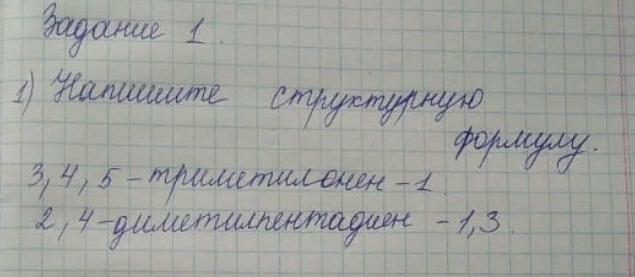 Задание 1.
1) Напишите структурную
формулу.
3, 4, 5 - триметилонен - 1.
2, 4 - диметилпентадиен - 1,3.